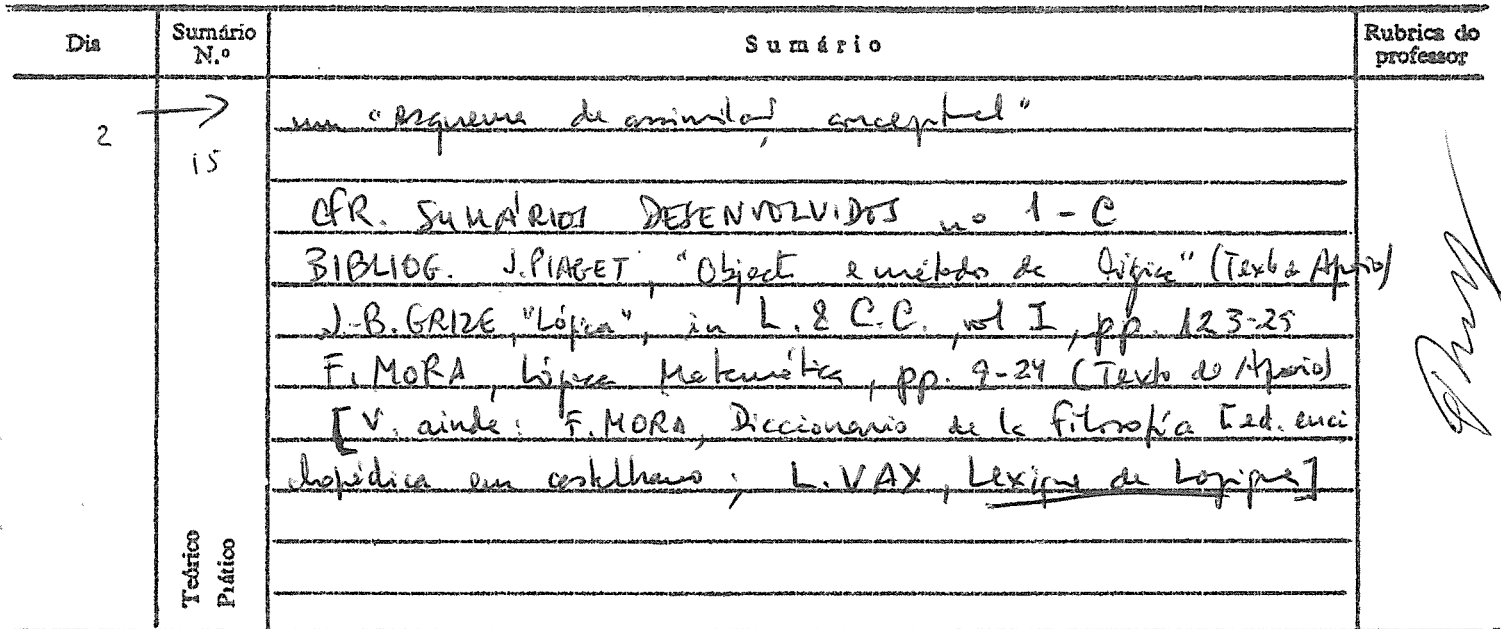 Dia
Sumário N.º
Sumário
Rubrica do professor
2
15
um "esquema de assimilaç. conceptual"
CFR. SUMÁRIOS DESENVOLVIDOS nº 1-C
BIBLIOG. J.PIAGET, "Objecto e métodos da lógica" (Texto Apoio)
J.-B. GRIZE, "Lógica", in L. & C.C., vol I, pp. 123-25
F. MORA, Lógica Matemática, pp. 9-24 (Texto de Apoio)
[V. ainda: F. MORA, Diccionario de la filosofía [ed. enci
clopédica em castelhano; L. VAX, Lexique de Logique]
Teórico
Prático